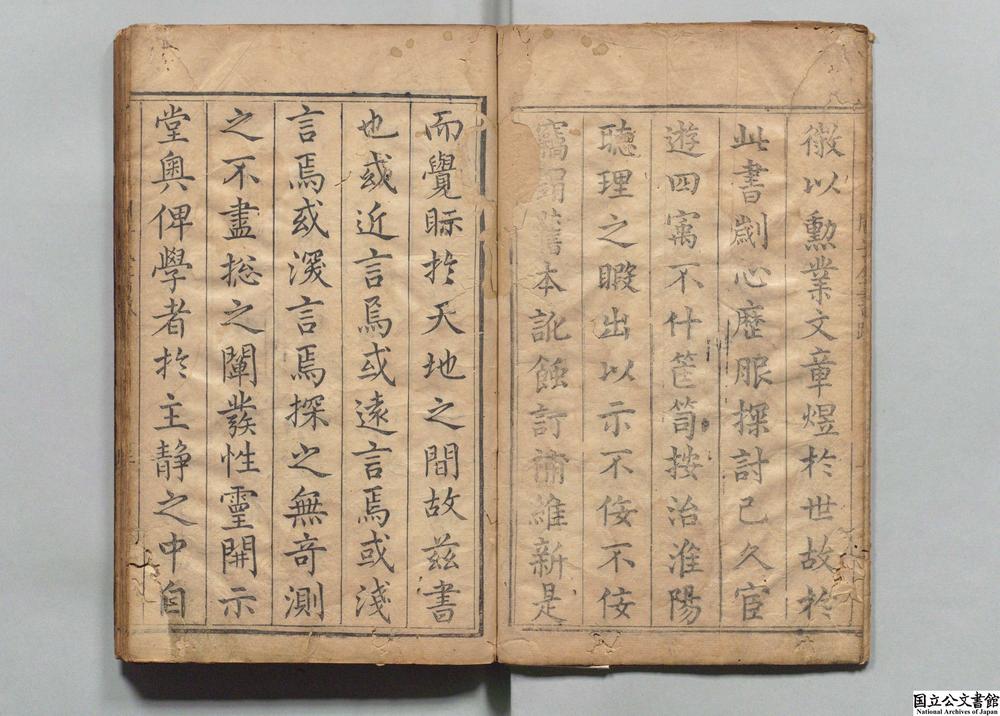 徵以勳業文章煜於世故於
此書劌心歷服探討已久宦
遊四寓不什筐笥按治淮陽
聽理之暇出以示不佞不佞
竊
舊本訛蝕訂補維新是
而覺眎於天地之間故茲書
也或近言焉或遠言焉或淺
言焉或深言焉探之無奇測
之不盡総之闡發性靈開示
堂奧俾學者於主靜之中自
国立公文書館
National Archives of Japan